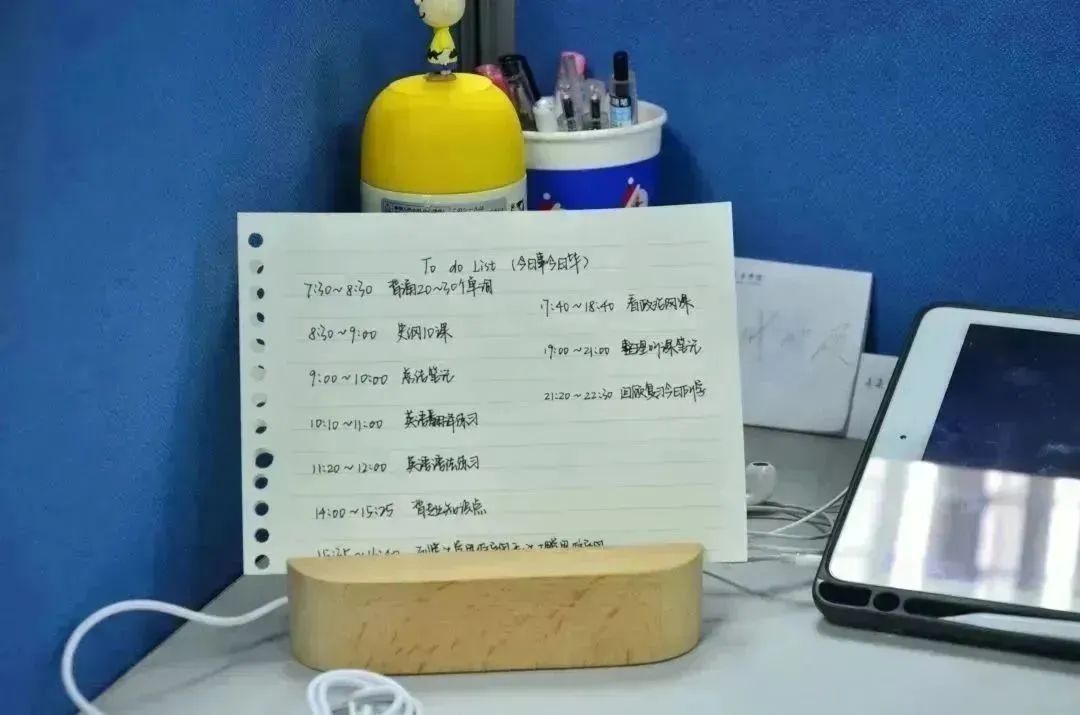 To do List (今日事今日毕)
7:30~8:30 背诵20~30个单词
8:30~9:00 史纲10课
9:00~10:00 语法笔记
10:10~11:00 英语翻译练习
11:20~12:00 英语语法练习
14:00~15:25 背专业知识点
17:40~18:40 看政治网课
19:00~21:00 整理听课笔记
21:20~22:30 回顾复习今日所学